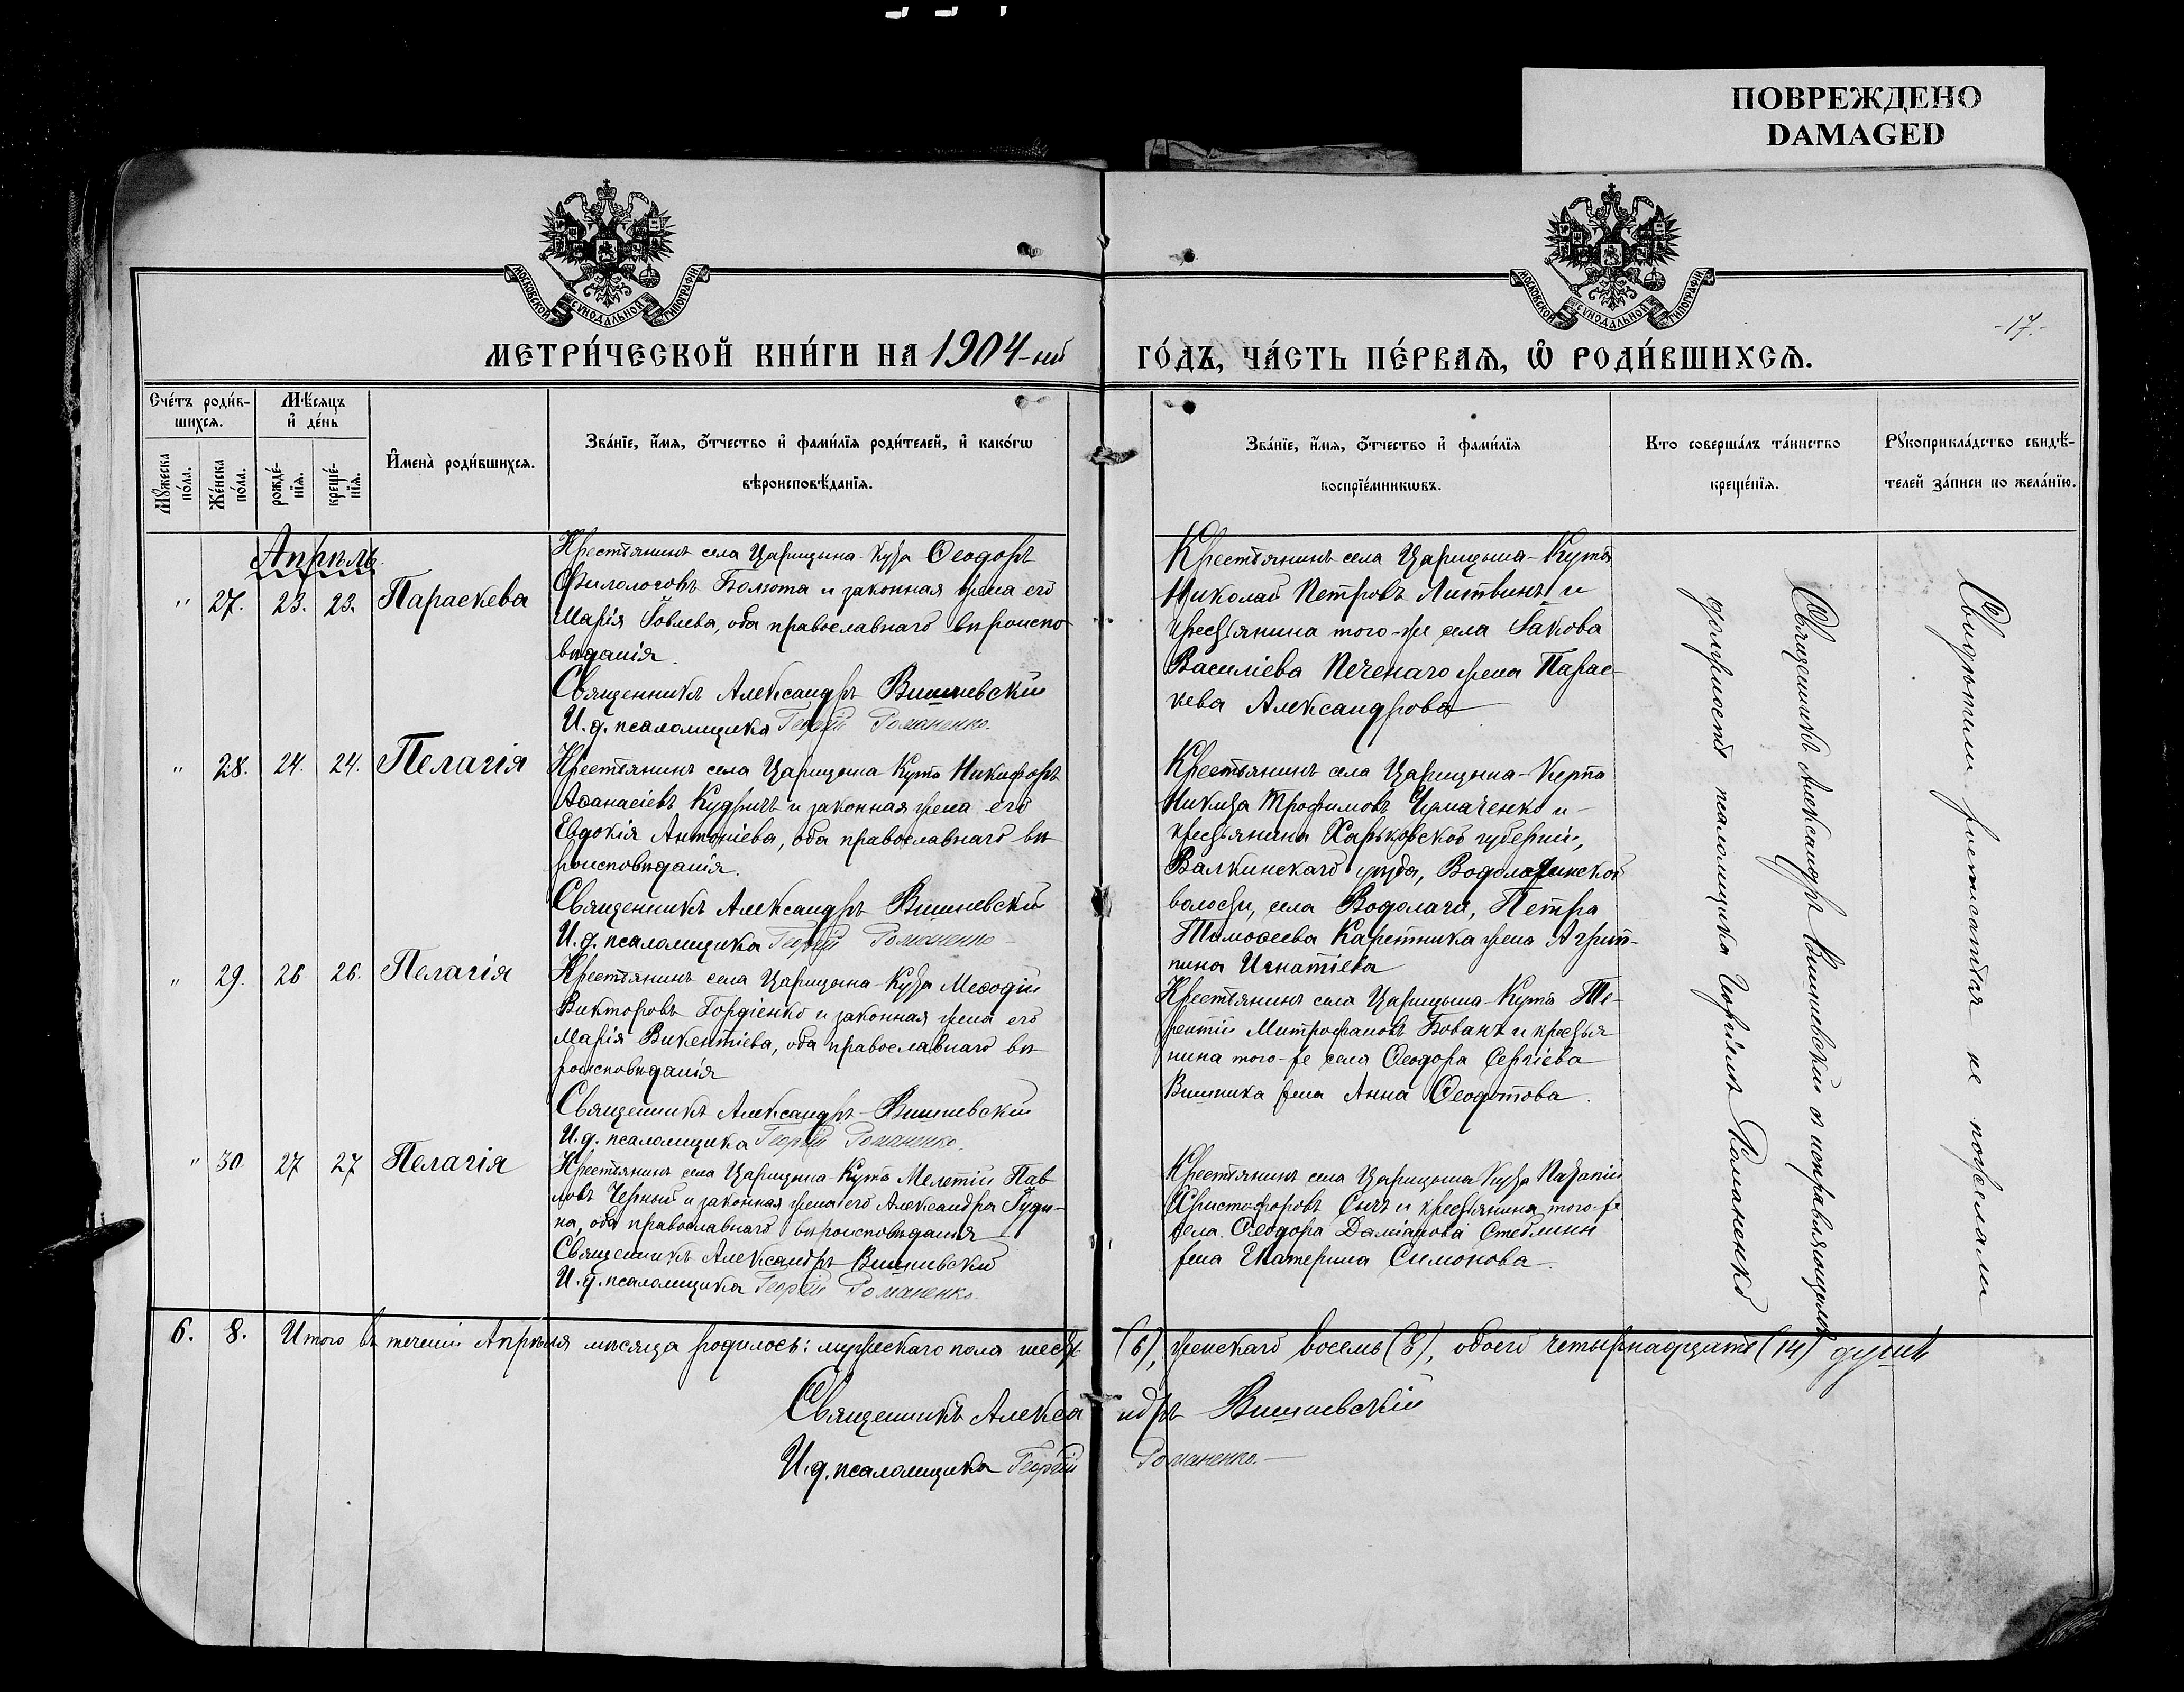 ПОВРЕЖДЕНО
DAMAGED
МОСКОВСКОЙ СѴНОДАЛЬНОЙ ТИПОГРАФІИ
МОСКОВСКОЙ СѴНОДАЛЬНОЙ ТИПОГРАФІИ
-17.-
МЕТРИ́ЧЕСКОЙ КНИ́ГИ НА 1904-ый
ГО́ДЪ, ЧА́СТЬ ПЕ́РВАѦ, Ѽ РОДИ́ВШИХСѦ.
Сче́тъ роди́в-
шихсѧ.
Мꙋ́жеска
по́ла.
Же́нска
по́ла.
Мѣ́сяцъ
и҆ де́нь
рожде́-
нїѧ.
креще́-
нїѧ.
И҆мена̀ роди́вшихсѧ.
Зва́нїе, и҆́мѧ, ѻ҆́тчество и҆ фами́лїѧ роди́телей, и҆ како́гѡ
вѣроисповѣ́данїѧ.
Зва́нїе, и҆́мѧ, ѻ҆́тчество и҆ фами́лїѧ
воспрїе́мникѡвъ.
Кто соверша́лъ та́инство
креще́нїѧ.
Рꙋкоприкла́дство свидѣ́-
телей за́писи по жела́нїю.
Апрѣль.
" 27. 23. 23. Параскева
Крестьянинъ села Царицына-Кута Ѳеодоръ
Филологовъ Болюта и законная жена его
Марія Іовлева, оба православнаго вѣроиспо-
вѣданія.
Священникъ Александръ Вишневскій
И. д. псаломщика Георгій Романенко.
Крестьянинъ села Царицына-Кута
Николай Петровъ Литвинъ и
крестьянина того-же села Іакова
Василіева Печенаго жена Парас-
кева Александрова
" 28. 24. 24. Пелагія
Крестьянинъ села Царицына-Кута Никифоръ
Аѳанасіевъ Кудричъ и законная жена его
Евдокія Антоніева, оба православнаго вѣ-
роисповѣданія.
Священникъ Александръ Вишневскій
И. д. псаломщика Георгій Романенко
Крестьянинъ села Царицына-Кута
Никита Трофимовъ и
крестьянина Харьковской губерніи,
Валкинскаго уѣзда, Водолажинской
волости, села Водолаги, Петра
Тимоѳеева Каретника жена Агрип-
пина Игнатіева
" 29. 26 26. Пелагія
Крестьянинъ села Царицына-Кута Меѳодій
Викторовъ Гордіенко и законная жена его
Марія Викентіева, оба православнаго вѣ-
роисповѣданія
Священникъ Александръ Вишневскій
И. д. псаломщика Георгій Романенко.
Крестьянинъ села Царицына-Кута Те-
рентій Митрофановъ Бованъ и крестья
нина того-же села Ѳеодора Сергіева
Вишника жена Анна Ѳеодотова.
" 30 27 27 Пелагія
Крестьянинъ села Царицына-Кута Мелетій Пав
ловъ Черный и законная жена его Александра Іуди-
на, оба православнаго вѣроисповѣданія
Священникъ Александръ Вишневскій
И. д. псаломщика Георгій Романенко.
Крестьянинъ села Царицына Кута
Христофоровъ Сычъ и крестьянина того-же
села Ѳеодора Даміанова
жена Екатерина Симонова.
Священникъ Александръ Вишневскій съ исправляющимъ
должность псаломщика Георгіемъ Романенко
Свидѣтели росписаться не пожелали
6. 8. Итого въ теченіи Апрѣля мѣсяца родилось: мужескаго пола шесть (6), женскаго восемь (8), обоего четырнадцать (14) душъ
Священникъ Александръ Вишневскій
И. д. псаломщика Георгій Романенко.